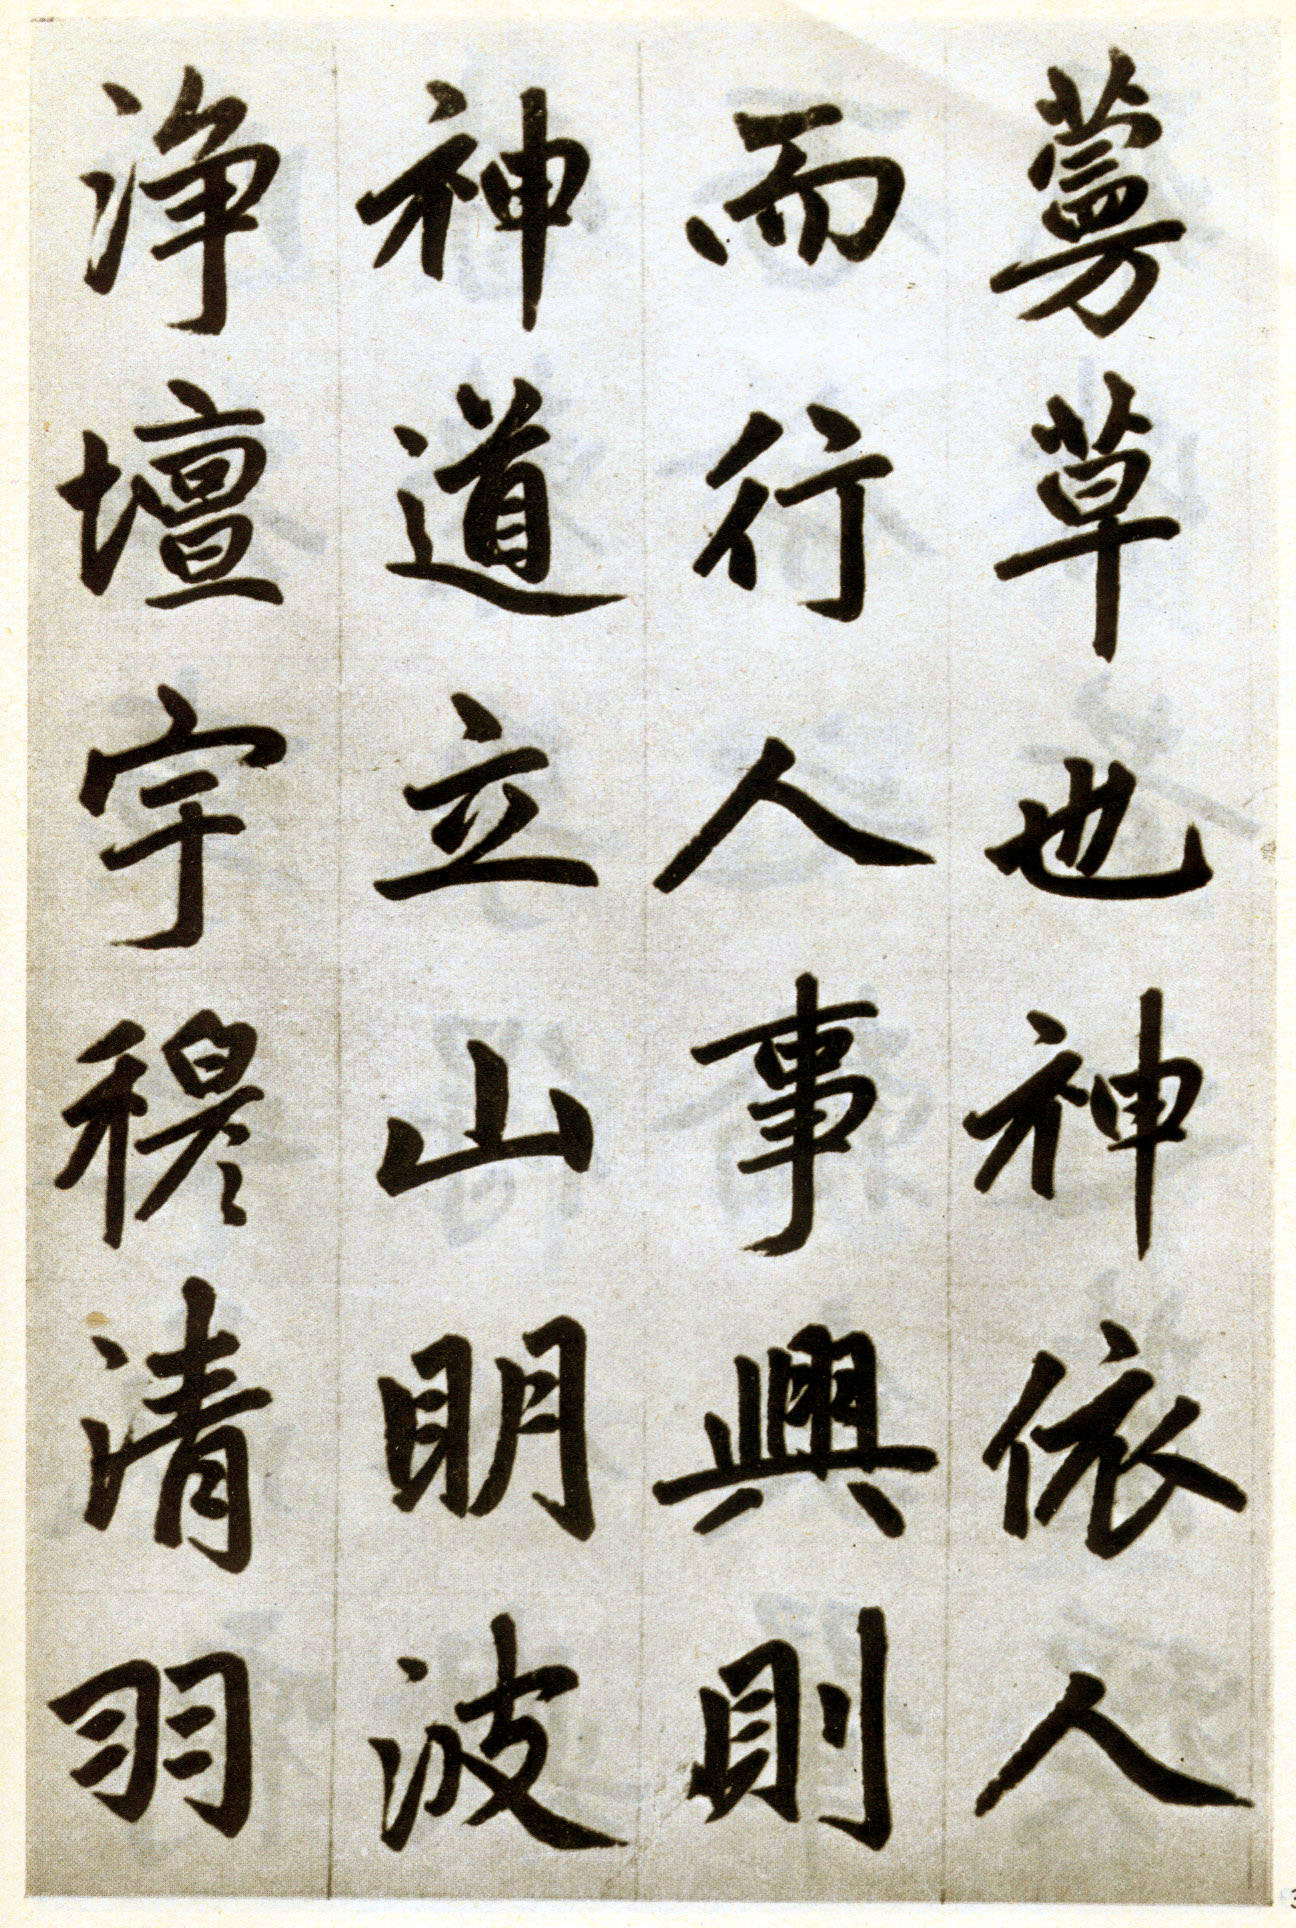 蔓草也神依人
而行人事興則
神道立山明波
浄壇宇穆清羽